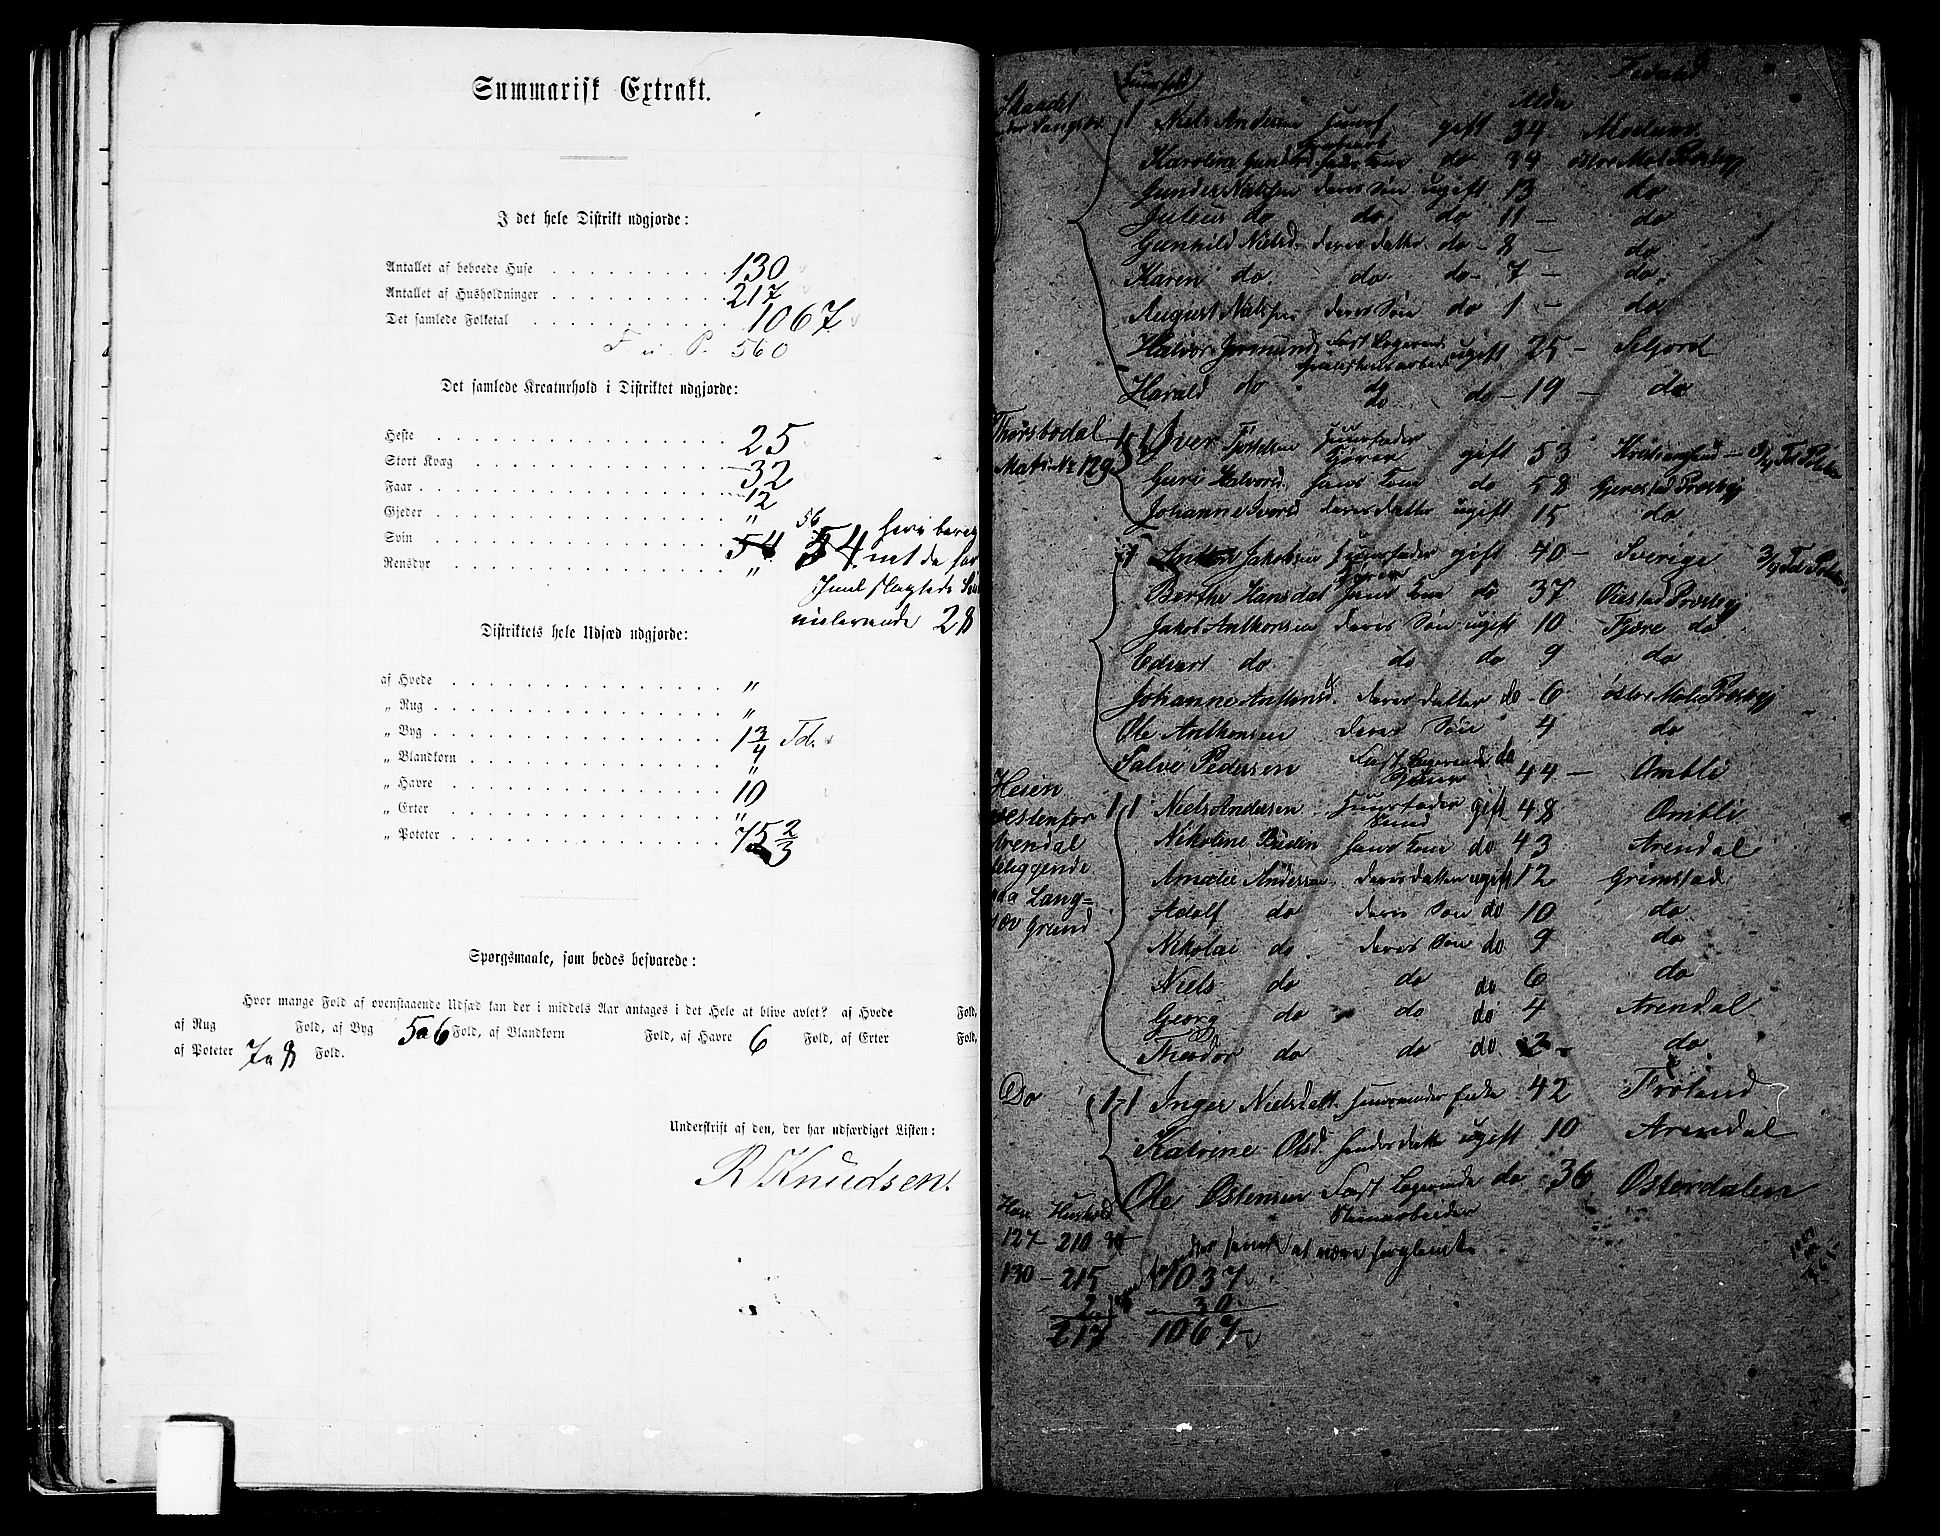 Summarisk Extrakt.
I det hele Distrikt udgjorde:
Antallet af beboede Huse 130
Antallet af Husholdninger 217
Det samlede Folketal 1067
F. u. P. 560
Det samlede Kreaturhold i Distriktet udgjorde:
Heste 25
Stort Kvæg 32
Faar 12
Gjeder "
56
Svin 54 54
Rensdyr "
28
Distriktets hele Udsæd udgjorde:
af Hvede "
„ Rug "
„ Byg 1 3/4 Td.
„ Blandkorn "
„ Havre 10
„ Erter "
„ Poteter 75 2/3
Spørgsmaale, som bedes besvarede:
Hvor mange Fold af ovenstaaende Udsæd kan der i middels Aar antages i det Hele at blive avlet? af Hvede Fold,
af Rug Fold, af Byg 5 a 6 Fold, af Blandkorn Fold, af Havre 6 Fold, af Erter Fold,
af Poteter 7 a 8 Fold.
Underskrift af den, der har udfærdiget Listen:
R Knudsen.
Alder Fødested
1 Niels Andersen gift 34
do 34 østre Mol. Præstegj
Gunder Nielsen deres Søn ugift 13 do
Julius do do do 11 — do
Gunhild Nielsd. deres datter do — 8 — do
Karen do. do. do — 7 — do.
August Nielsen deres Søn do 1 — do
Halvor Gormunds. fast Logerende ugift 25 — Seljord
Harald do do do do — 19 — do
Thorsbodal 1 1 Iver Huusfader gift 53 3/4 Td Poteter
Matr. No 129 Guri Halvorsd. hans Kone do 58 Gjerestad Præstegj
Johanne Iversd. deres datter ugift 15 do
1 Jakobsen Huusfader gift 40 — Sverige 3/4 Td Poteter
Berthe Hansdat hans Kone do 37 Øiestad Præstegj
Jakob Anthonsen deres Søn ugift 10 Fjære do
Edvart do. do do 9 do
Johanne Anthonsd. deres datter do 6 østre Mol. Præstegj
Ole Anthonsen deres Søn 4 do
Salve Pedersen fast Logerende do 44 — Ombli
Heien
vestenfor 1 1 Niels Andersen Huusfader gift 48 Ombli
Arendal Nikoline hans Kone do 43 Arendal
beliggende Amalie Andersen deres datter ugift 12 Grimstad
paa Lang= Adolf do deres Søn do 10 do
sæv grund Nikolai do. deres Søn do 9 do
Niels do do do 6 do
Georg do do do 4 Arendal
Theodor do do do. 2 — do
Do 1 1 Inger Nielsdatt. Huusmoder 42 Froland
Katrine Olsd. hendes datter ugift 10 Arendal
Ole Østensen fast Logerende do 36 Østerdalen
Huse Hushold. Steenarbeider
127 — 210
130 — 215 1037
2 30
217 1067